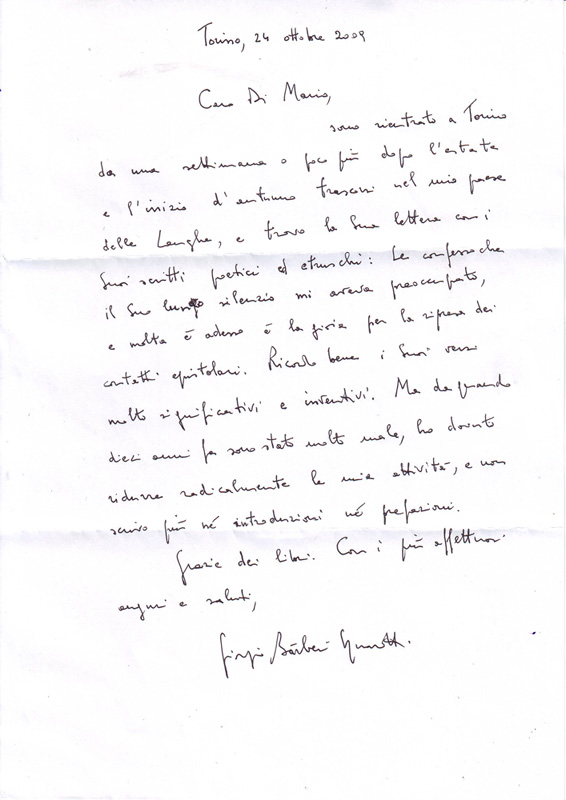 Torino, 24 ottobre 2009
Caro Di Mario,
sono rientrato a Torino
da una settimana o poco più dopo l'estate
e l'inizio d'autunno trascorsi nel mio paese
delle Langhe, e trovo la Sua lettera con i
Suoi scritti poetici ed etruschi: Le confesso che
il Suo lungo silenzio mi aveva preoccupato,
e molta è adesso è la gioia per la ripresa dei
contatti epistolari. Ricordo bene i Suoi versi
molto significativi e inventivi. Ma da quando
dieci anni fa sono stato molto male, ho dovuto
ridurre radicalmente la mia attività, e non
scrivo più né introduzioni né prefazioni.
Grazie dei libri. Con i più affettuosi
auguri e saluti,
Giorgio Bàrberi Squarotti.